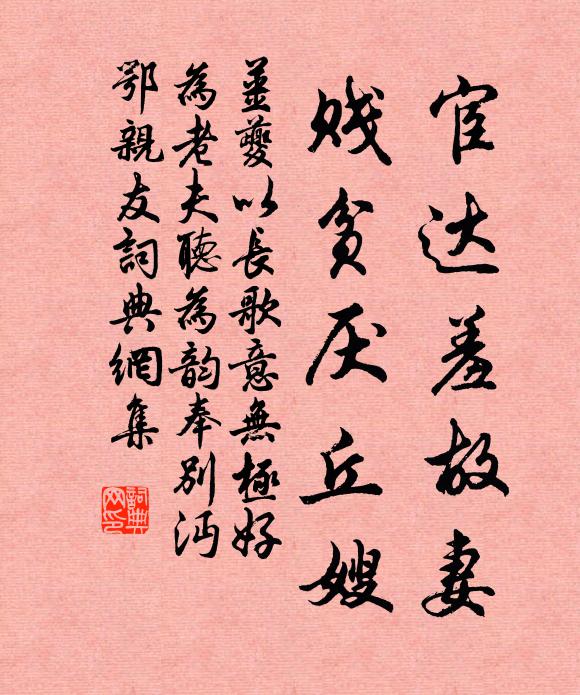 宦达羞故妻
贱贫厌丘嫂
薑夔以長歌意無極好
為老夫聽為韵奉別沔
鄂親友詞典網集
詞典
网印